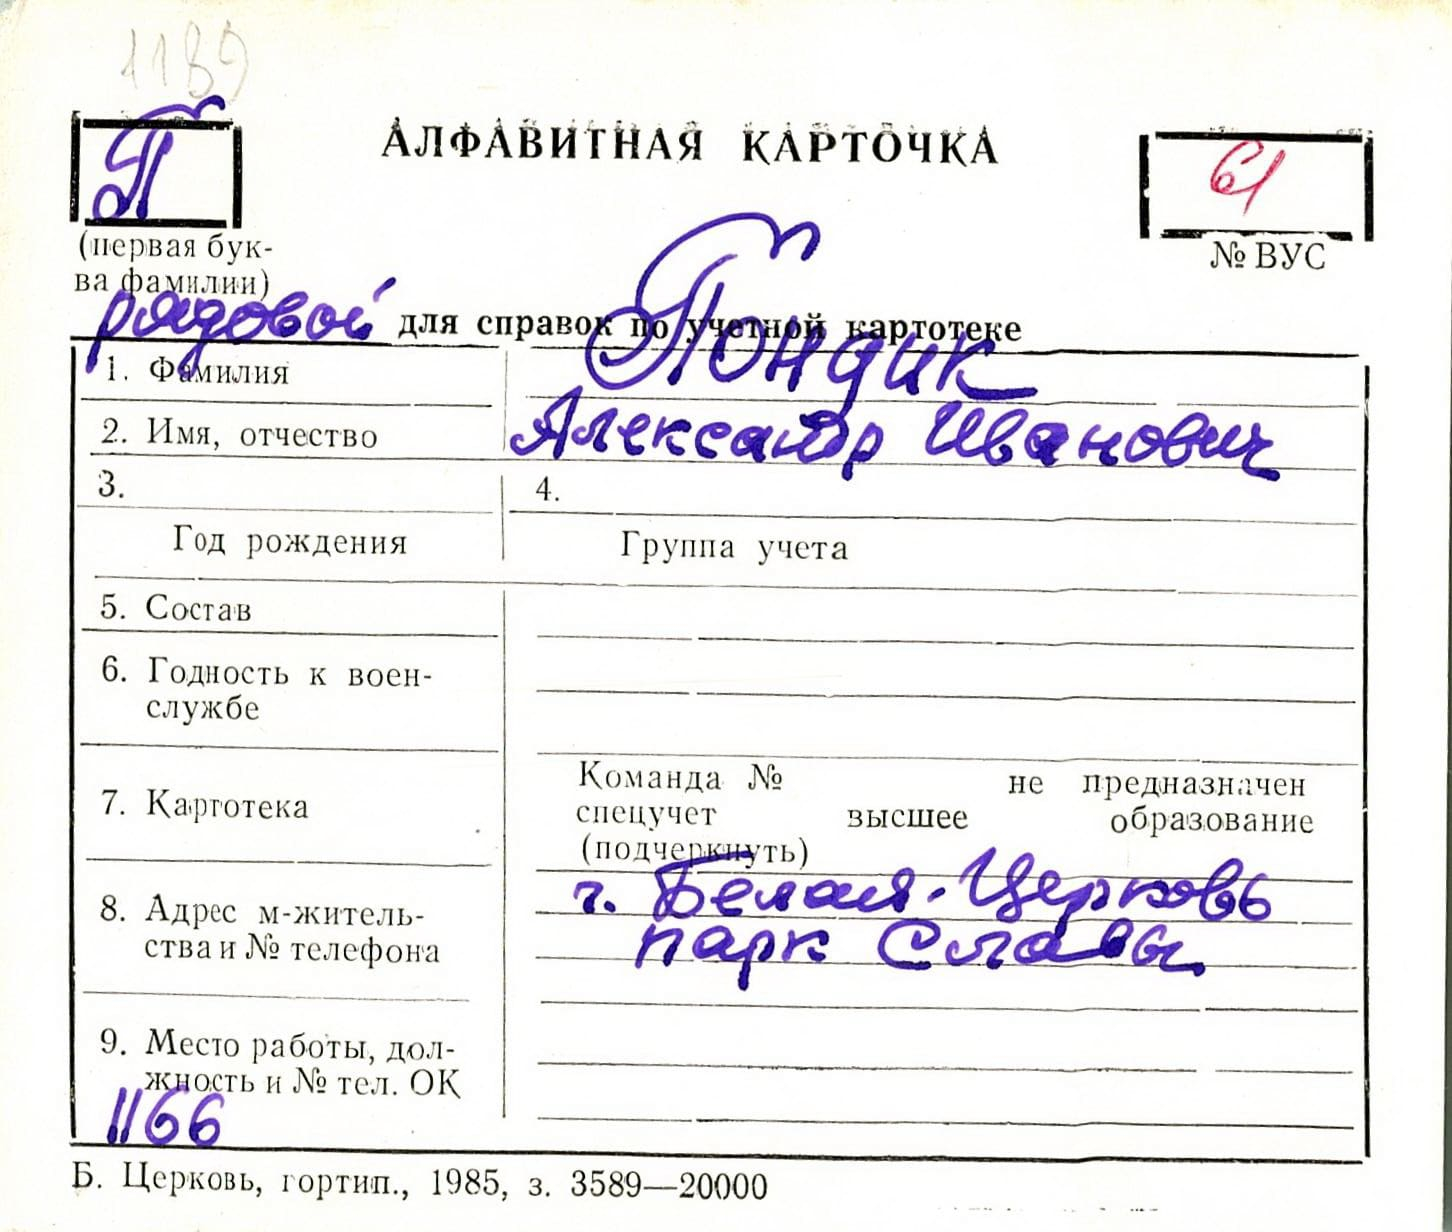 1189
П
АЛФАВИТНАЯ КАРТОЧКА
61
(первая бук-
ва фамилии)
№ ВУС
рядовой для справок по учетной картотеке
1. Фамилия Пондик
2. Имя, отчество Александр Иванович
3. 4.
Год рождения Группа учета
5. Состав
6. Годность к воен-
службе
7. Картотека
Команда № не предназначен
спецучет высшее образование
(подчеркнуть)
8. Адрес м-житель-
ства и № телефона
г. Белая-Церковь
парк Славы
9. Место работы, дол-
жность и № тел. ОК
1166
Б. Церковь, гортип., 1985, з. 3589—20000